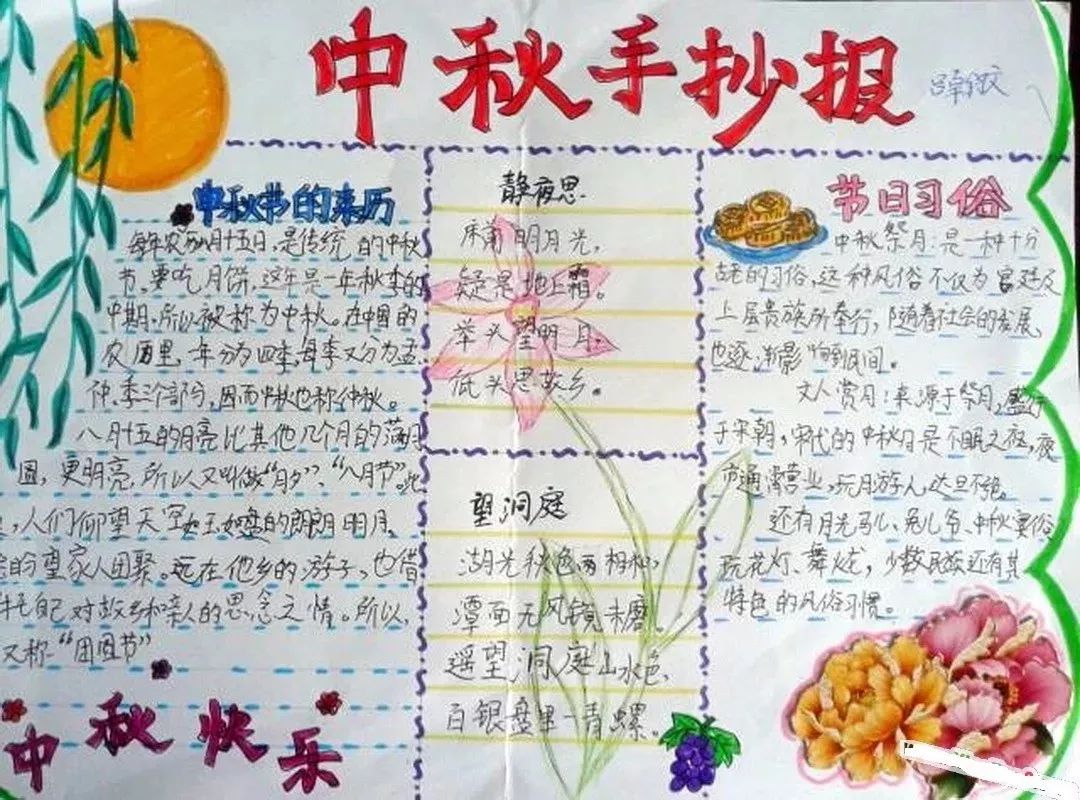 中秋手抄报
中秋节的来历
每年农历八月十五日,是传统的中秋
节。要吃月饼,这年是一年秋季的
中期,所以被称为中秋。在中国的
农历里,一年分为四季,每季又分为孟
仲、季三个部分,因而中秋也称仲秋。
八月十五的月亮比其他几个月的满月
圆,更明亮,所以又叫做“月夕”、“八月节”。此
,人们仰望天空如玉如盘的朗朗明月,
的望家人团聚。远在他乡的游子,也借
自己对故乡和亲人的思念之情。所以,
又称“团圆节”
中秋快乐
静夜思
床前明月光,
疑是地上霜。
举头望明月,
低头思故乡。
望洞庭
湖光秋色两相和,
潭面无风镜未磨。
遥望洞庭山水色,
白银盘里一青螺。
节日习俗
中秋祭月:是一种十分
古老的习俗,这种风俗不仅为宫廷及
上层贵族所奉行,随着社会的发展,
也逐渐影响到民间。
文人赏月:来源于祭月,盛行
于宋朝,宋代的中秋月是不眠之夜,夜
市通宵营业,玩月游人,达旦不绝。
还有月光马儿、兔儿爷、中秋宴俗
玩花灯、舞火龙,少数民族还有其
特色的风俗习惯。